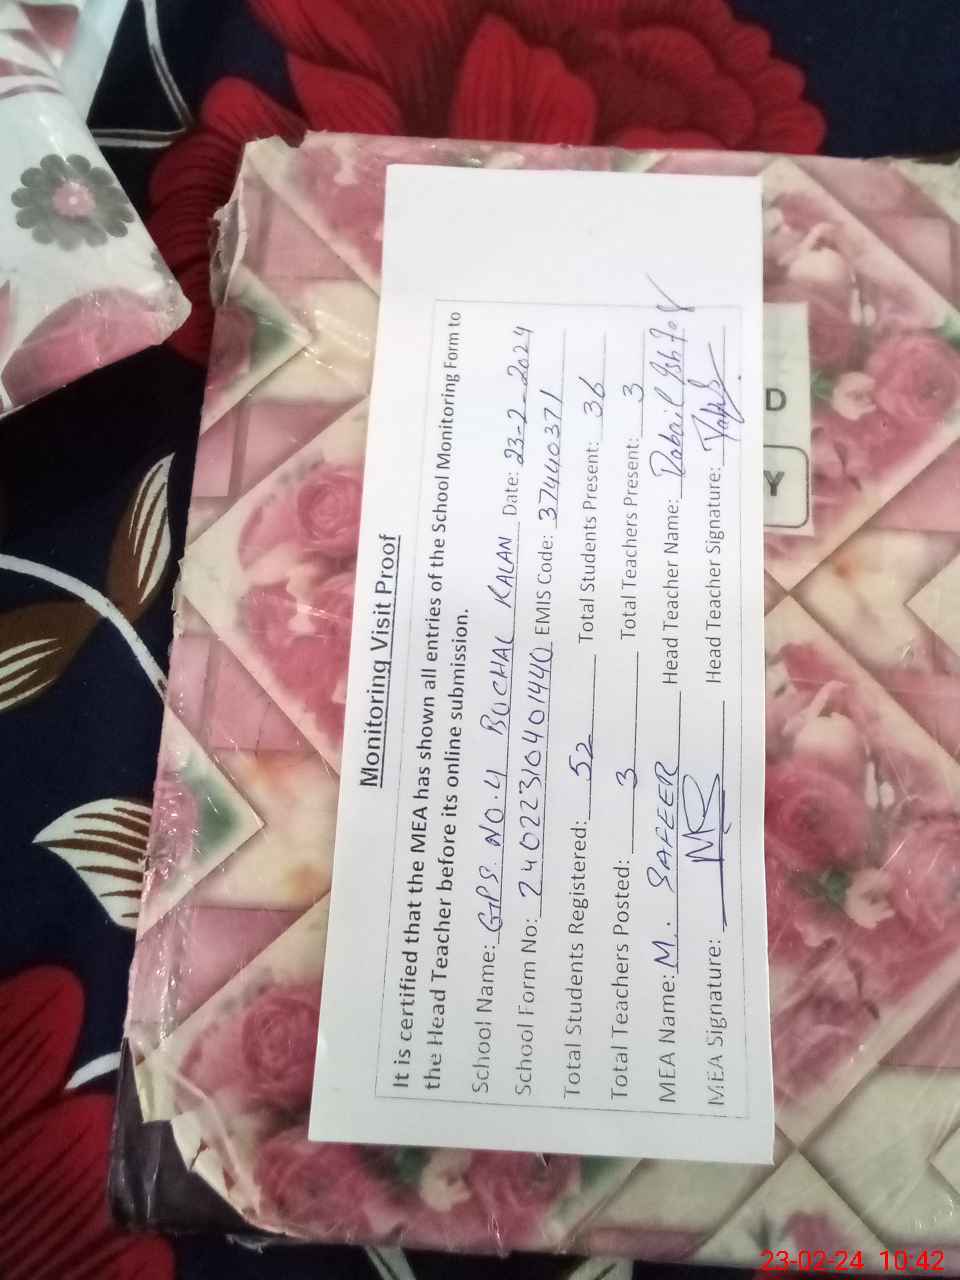 Monitoring Visit Proof
It is certified that the MEA has shown all entries of the School Monitoring Form to
the Head Teacher before its online submission.
School Name: GPS NO.4 BUCHAL KALAN Date: 23-2-2024
School Form No: 24022310401440 EMIS Code: 37440371
Total Students Registered: 52 Total Students Present: 36
Total Teachers Posted: 3 Total Teachers Present: 3
MEA Name: M. SAFEER Head Teacher Name:
MEA Signature: Head Teacher Signature:
D
Y
23-02-24 10:42